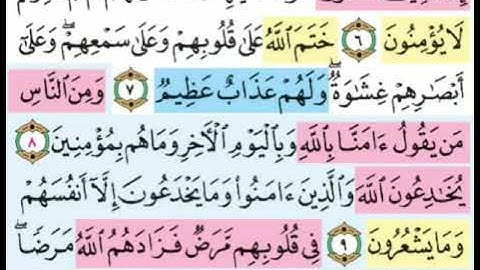 لَا يُؤْمِنُونَ ٦ خَتَمَ ٱللَّهُ عَلَىٰ قُلُوبِهِمْ وَعَلَىٰ سَمْعِهِمْ ۖ وَعَلَىٰٓ
أَبْصَٰرِهِمْ غِشَٰوَةٌ ۖ وَلَهُمْ عَذَابٌ عَظِيمٌ ٧ وَمِنَ ٱلنَّاسِ
مَن يَقُولُ ءَامَنَّا بِٱللَّهِ وَبِٱلْيَوْمِ ٱلْءَاخِرِ وَمَا هُم بِمُؤْمِنِينَ ٨
يُخَٰدِعُونَ ٱللَّهَ وَٱلَّذِينَ ءَامَنُوا۟ وَمَا يَخْدَعُونَ إِلَّآ أَنفُسَهُمْ
وَمَا يَشْعُرُونَ ٩ فِى قُلُوبِهِم مَّرَضٌ فَزَادَهُمُ ٱللَّهُ مَرَضًا ۖ